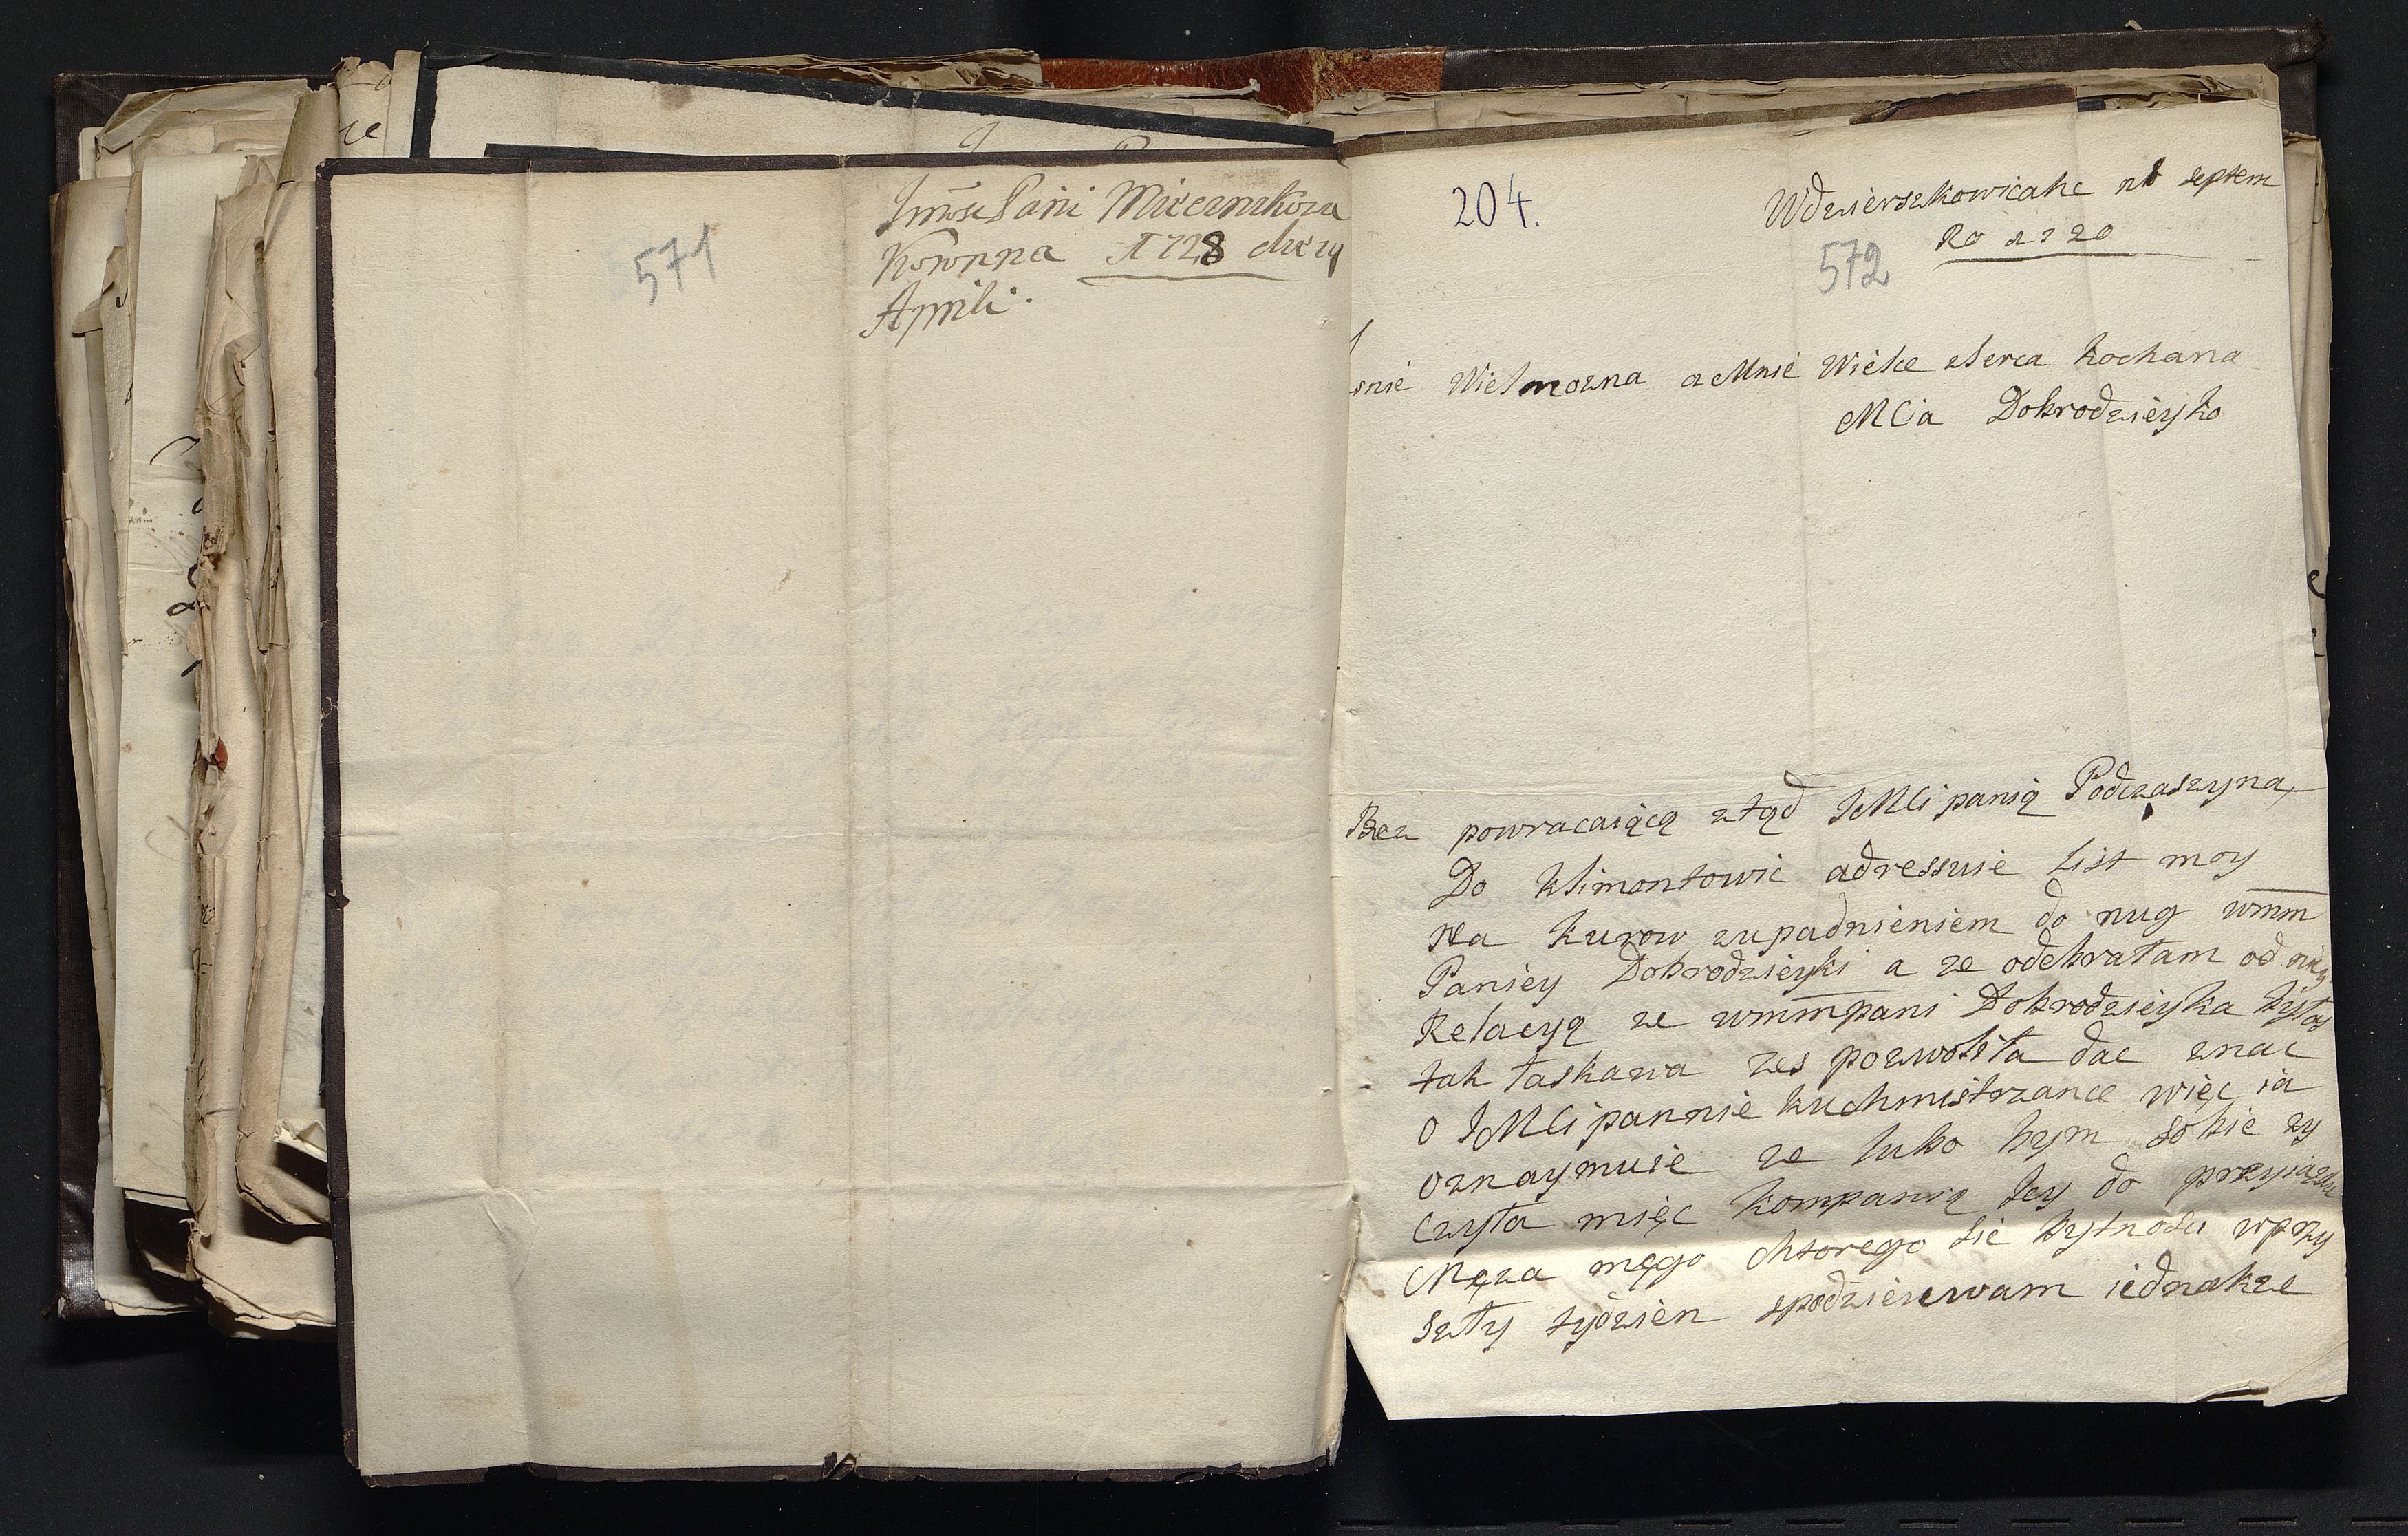 Jmość Pani Miecznikowa
Kownna 1728 dnia
Aprili.
571
204.
Wdzierszkowicahc n8 septem
Ro 1720
572
snie Wielmozna a Mnie Wielce zserca kochana
MCia Dobrodzieyko
Bez powracaiącą ztąd JMCi panią Podczaszyną
Do klimontowic adressuie list moy
Na kurow zupadnieniem do nug wmm
Paniey Dobrodzieyki a ze odebrałam od niey
Relacyą ze wmmpani Dobrodzieyka była
tak łaskawa zes pozwoliła dac znac
O JMCi pannie kuchmistrzance więc ia
oznaymuie ze lubo bym sobie zy
czyła mięc kompanią Jey do przyiazdu
Męza męgo chtorego sie bytnosci wprzy
szły tydzien spodziewam iednakze